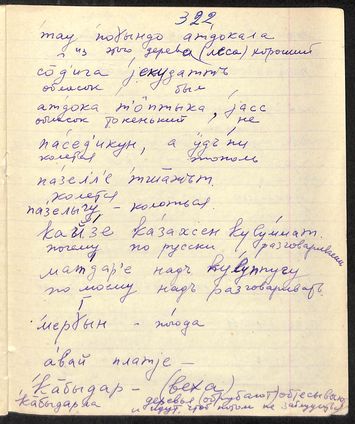 322
тау по̄бындо атдокала
из этого дерева (леса) хороший
со̄дига је̨кудаттъ
обласок был
атдока тӧптыка, јасс
обласок тоненький, не
па́седикун, а ӱдъ пи
колется тополь
па́зелл'е
колется
пазелыгу – колоться
кайзе ка́захсен кулу́мат.
почему по русски разговариваешь
матдар'е надъ кулуппугу
по моему надъ разговаривать
ме́рбын – плода
авай платје –
ка̄быдар – (веха)
ка̄быдарла деревья (обрубают) обтесывают
и идут, чтоб потом не заблудиться